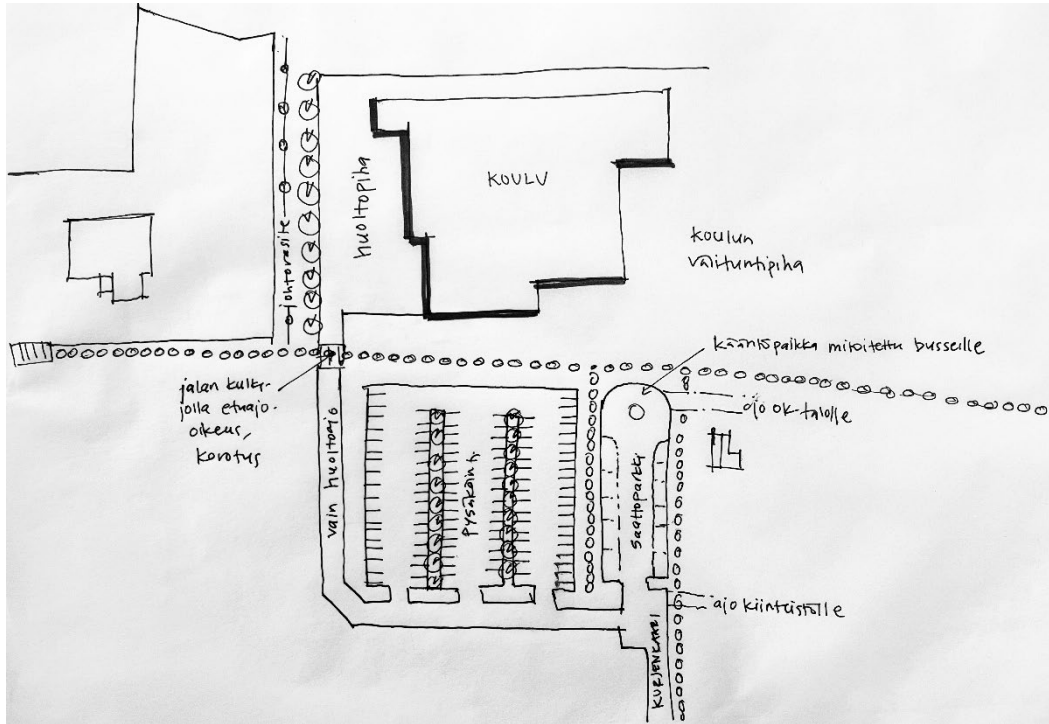 KOULU
huoltopiha
koulun
välituntipiha
johtorasite
kääntöpaikka mitoitettu busseille
ajo ok-talolle
jalan kulki-
jolla etuajo-
oikeus,
korotus
vain huoltoajo
pysäköinti
Saattoparkki
ajo kiinteistölle
KURJENKAARI